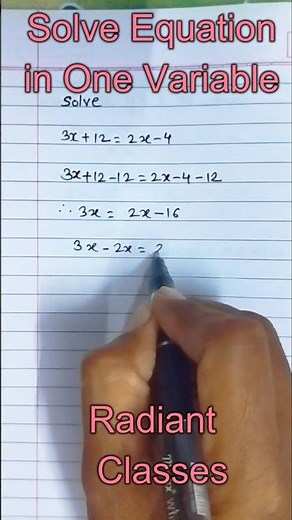 Solve Equation
in One Variable
Solve
3x+12 = 2x-4
3x+12-12 = 2x-4-12
∴ 3x = 2x-16
3x-2x = 2
Radiant
Classes